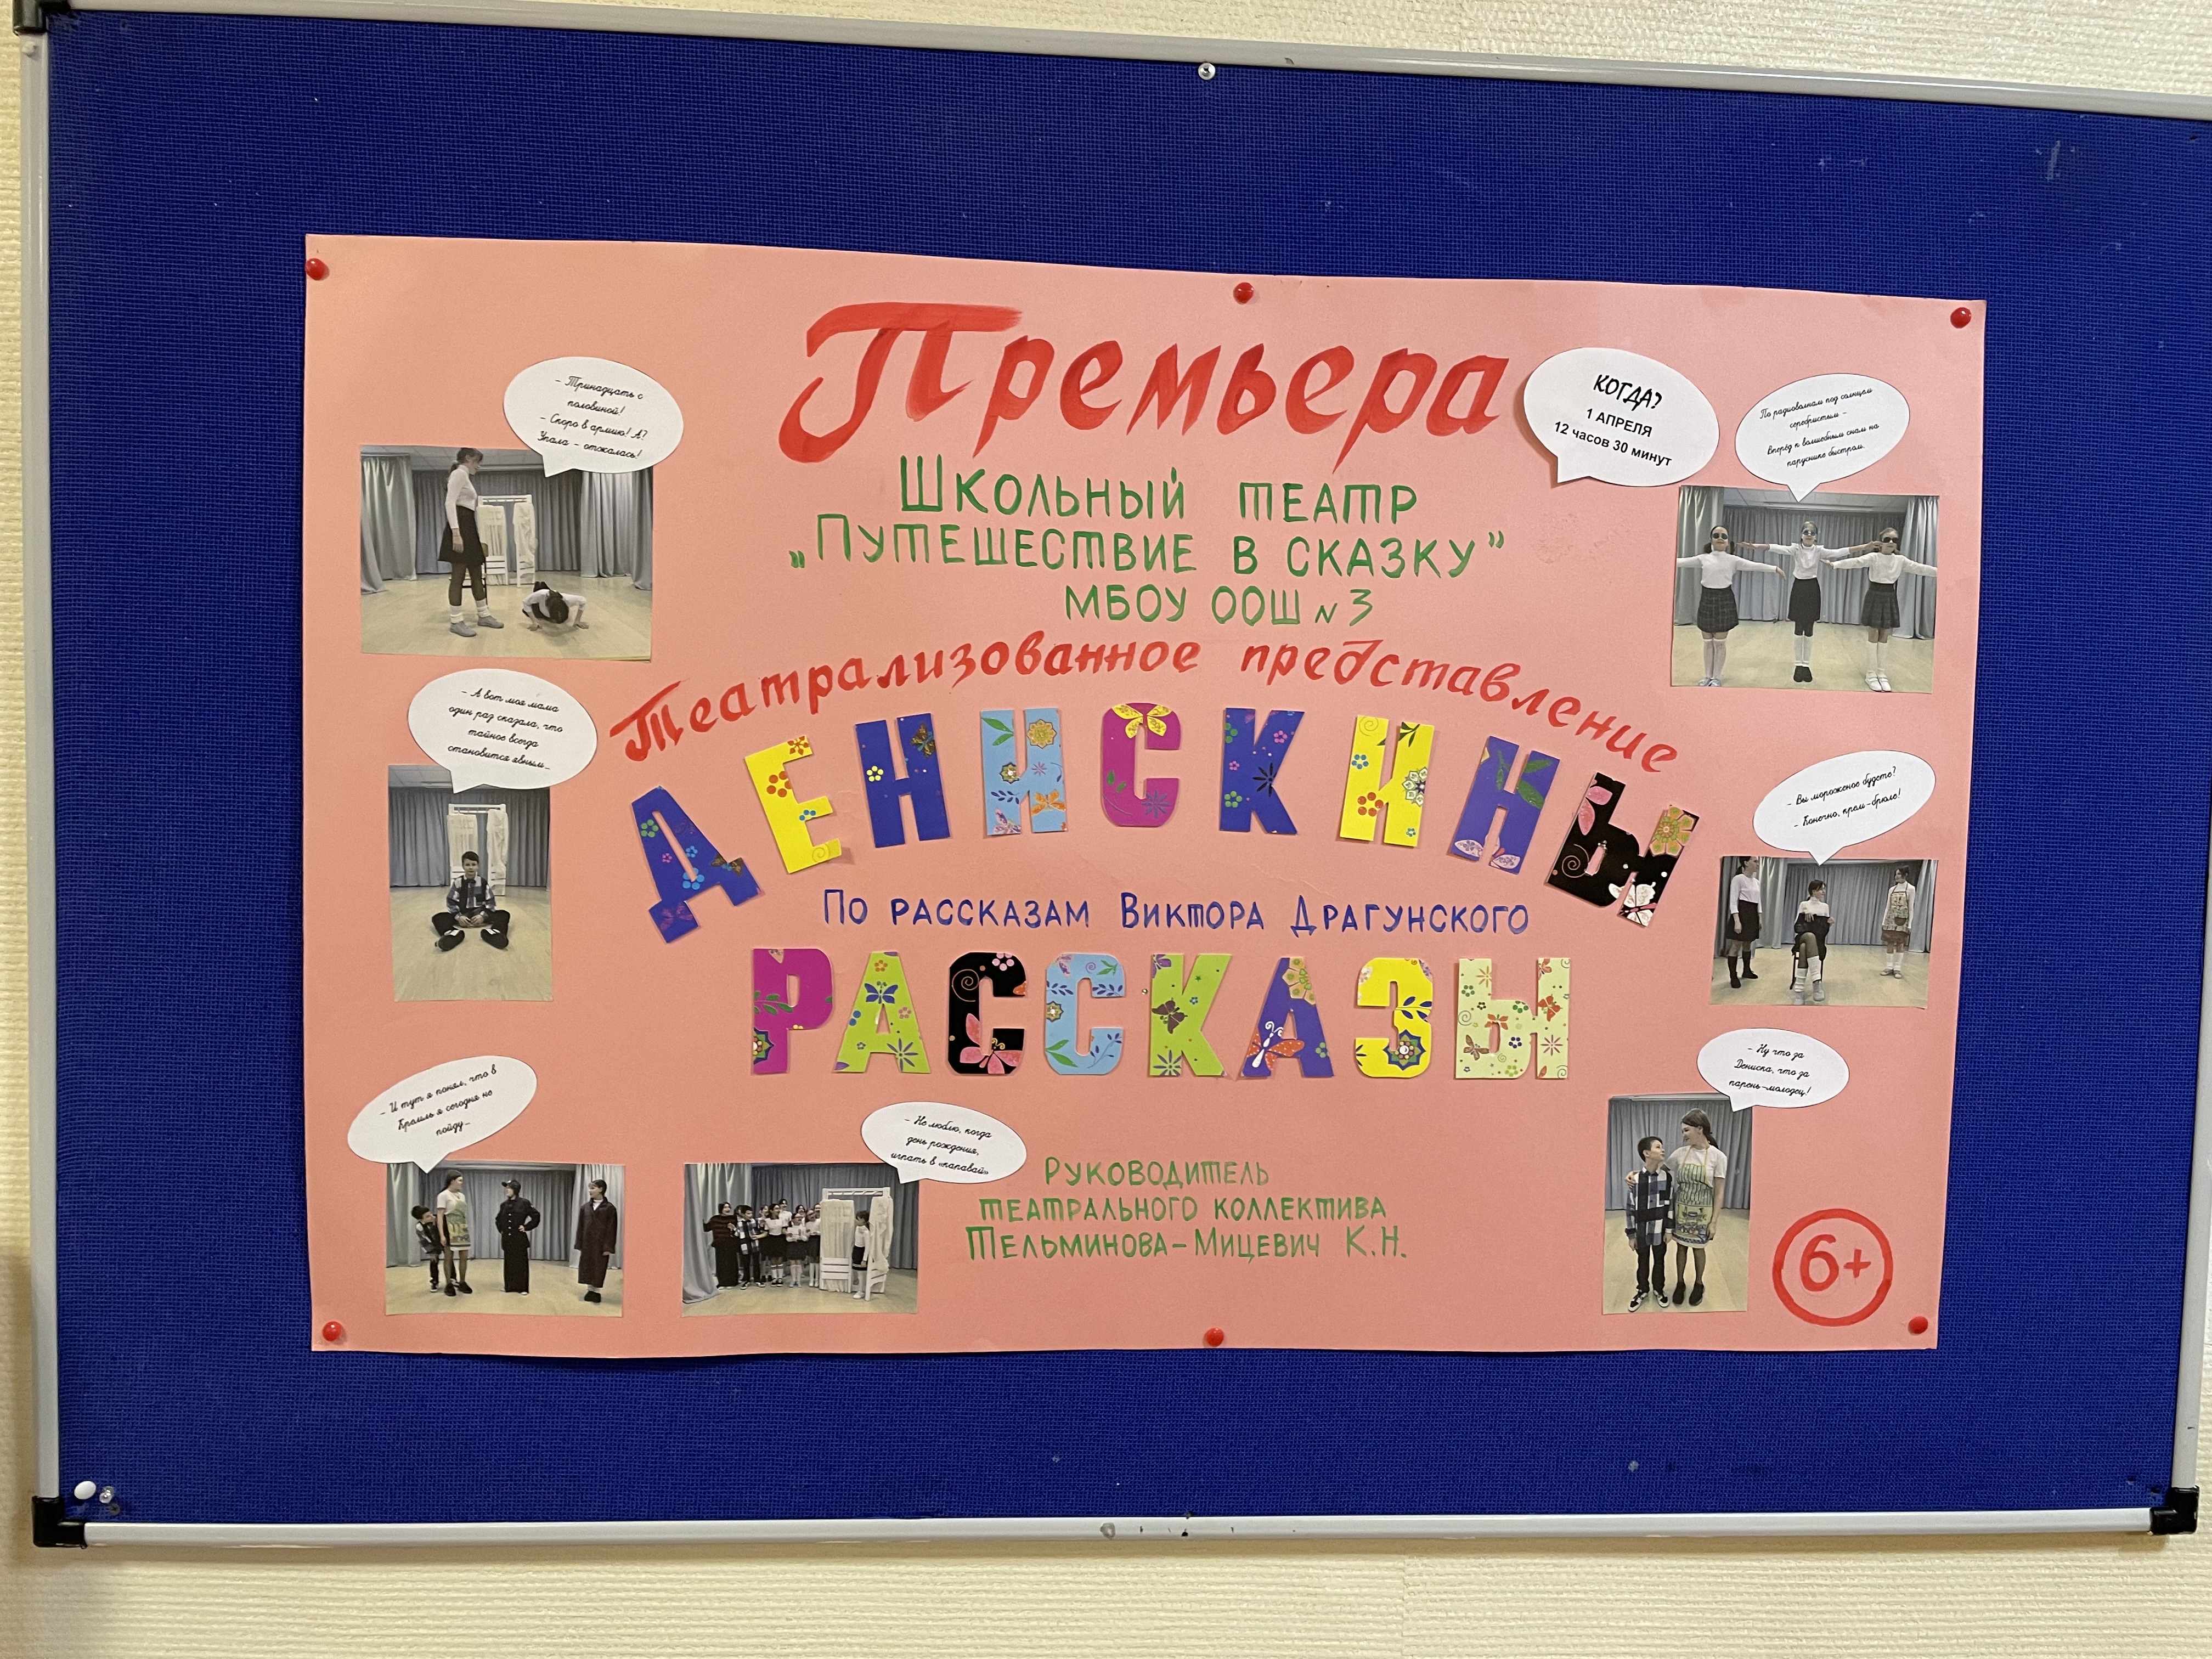 Премьера
КОГДА?
1 АПРЕЛЯ
12 часов 30 минут
Школьный театр
„Путешествие в сказку”
МБОУ ООШ №3
Театрализованное представление
ДЕНИСКИНЫ
По рассказам Виктора Драгунского
РАССКАЗЫ
Руководитель
театрального коллектива
Тельминова-Мицевич К.Н.
6+
- Тринадцать с
половиной!
- Скоро в армию! А?
Упала - отжалась!
- А вот моя мама
один раз сказала, что
тайное всегда
становится явным...
- И тут я понял, что в
Кремль я сегодня не
пойду...
- Не люблю, когда
день рождения,
играть в «папавай»
По радиоволнам под солнцем
серебристым -
Вперёд к волшебным снам на
паруснике быстром.
- Вы мороженое будете?
- Конечно, крем-брюле!
- Ну что за
Дениска, что за
парень-молодец!